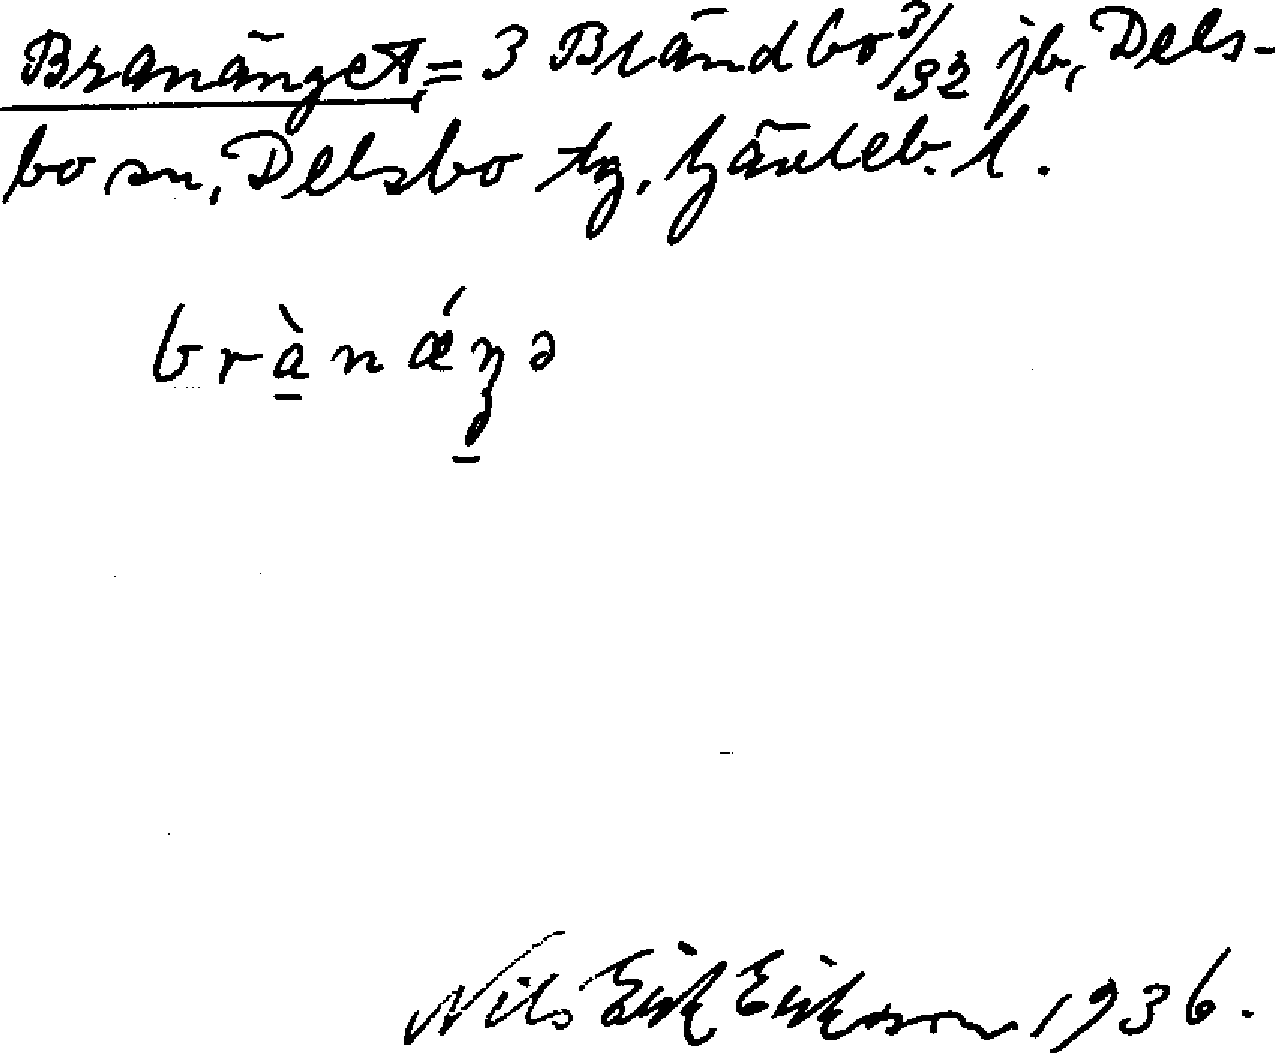 Branänget = 3 Brändbo 3/32 jb, Dels-
bo sn, Delsbo tg. Gävleb. l.
brànǽŋə
Nils Erik Eriksson 1936.